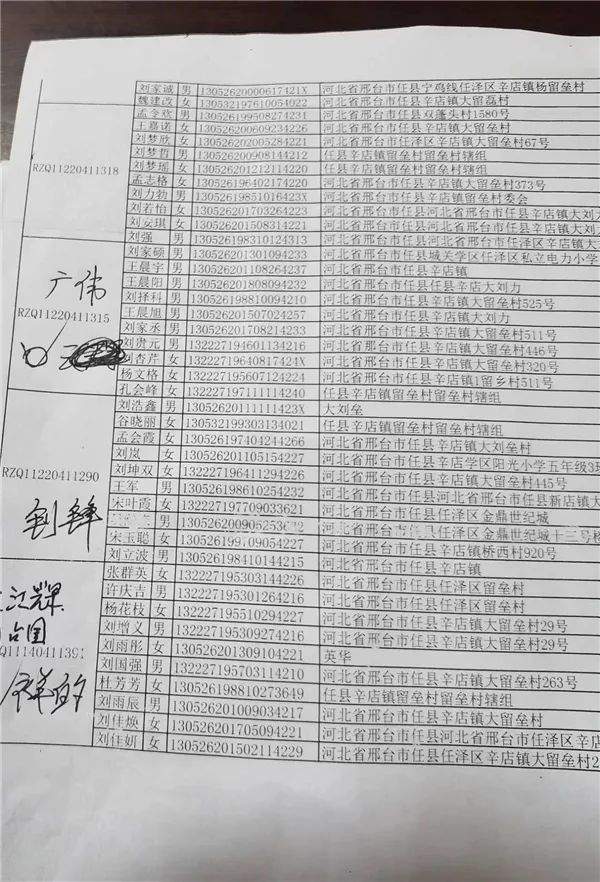 刘家诚 男 13052620000617421X 河北省邢台市任县宁鸡线任泽区辛店镇杨留垒村
魏建改 女 130532197610054022 河北省邢台市任县辛店镇大留磊村
孟令欢 男 130526199508274231 河北省邢台市任县双蓬头村1580号
王嘉诺 女 130526200609234226 河北省邢台市任县辛店镇大留垒村
刘梦欣 女 130526202005284221 河北省邢台市任泽区辛店镇大留垒村67号
刘梦哲 男 130526200908144212 任县辛店镇留垒村留垒村辖组
RZQ11220411318
刘梦瑶 女 130526201212114220 任县辛店镇留垒村留垒村辖组
孟志格 女 130526196402174220 河北省邢台市任县辛店镇大留垒村373号
刘力勃 男 13052619851016423X 河北省邢台市任县辛店镇留垒村委会
刘若怡 女 130526201703264223 河北省邢台市任县河北省邢台市任县辛店镇大刘力
刘安琪 女 130526201508314221 河北省邢台市任县河北省邢台市任县辛店镇大刘力
刘强 男 130526198310124313 河北省邢台市任县河北省邢台市任泽区辛店镇大
刘家硕 男 130526201301094233 河北省邢台市任县城关学区任泽区私立电力小学
王晨宇 男 130526201108264237 河北省邢台市任县辛店镇
广伟
王晨阳 男 130526201808094232 河北省邢台市任县任县辛店大刘力
刘择科 男 130526198810094210 河北省邢台市任县辛店镇大留垒村525号
RZQ11220411315
王晨旭 男 130526201507024257 河北省邢台市任县辛店镇大刘力
刘家丞 男 130526201708214233 河北省邢台市任县辛店镇大留垒村511号
刘贵元 男 132227194601134216 河北省邢台市任县辛店镇大留垒村446号
刘杏芹 女 13222719640817424X 河北省邢台市任县辛店镇大留垒村320号
杨文格 女 132227195607124224 河北省邢台市任县辛店镇1留乡村511号
孔会峰 女 132227197111114240 任县辛店镇留垒村留垒村辖组
刘浩鑫 男 13052620111111423X 大刘垒
谷晓丽 女 130532199303134021 任县辛店镇留垒村留垒村辖组
孟会霞 女 130526197404244266 河北省邢台市任县辛店镇大刘垒村
刘岚 女 130526201105154227 河北省邢台市任县辛店学区阳光小学五年级3班
RZQ11220411290
刘坤双 女 132227196411294226 河北省邢台市任县辛店镇大留垒村445号
王军 男 130526198610254232 河北省邢台市任县河北省邢台市任县新店镇大
宋叶霞 女 132227197709033621 河北省邢台市任县任泽区金鼎世纪城
刘锋
男 河北省邢台市任县任泽区金鼎世纪城十三号楼
宋玉聪 女 130526199709054227 河北省邢台市任县辛店镇桥西村920号
刘立波 男 130526198410144215 河北省邢台市任县辛店镇
张群英 女 132227195303144226 河北省邢台市任县任泽区留垒村
许庆吉 男 132227195301264216 河北省邢台市任县任泽区留垒村
杨花枝 女 132227195510294227 河北省邢台市任县辛店镇大留垒村29号
刘增义 男 132227195309274216 河北省邢台市任县辛店镇大留垒村29号
刘雨彤 女 130526201309104221 英华
Q11140411391
刘国强 男 132227195703114210 河北省邢台市任县辛店镇大留垒村263号
杜芳芳 女 130526198810273649 任县辛店镇留垒村留垒村辖组
刘雨辰 男 130526201009034217 河北省邢台市任县辛店镇大留垒村
刘佳焕 女 130526201705094221 河北省邢台市任县河北省邢台市任县辛店镇大留
刘佳妍 女 130526201502114229 河北省邢台市任县任泽区辛店镇大留垒村2